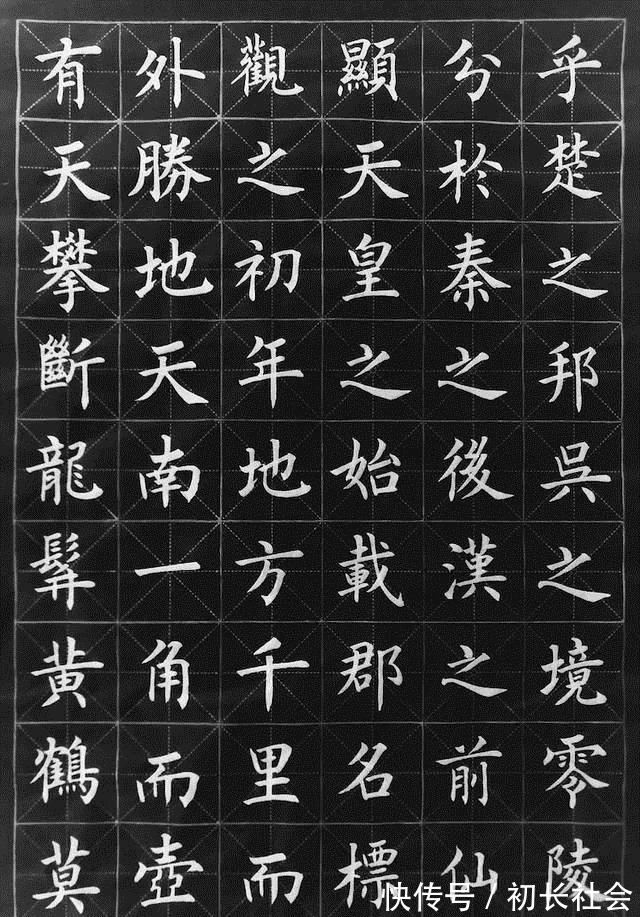 乎楚之邦吳之境零陵
分於秦之後漢之前仙
顯天皇之始載郡名標
觀之初年地方千里而
外勝地天南一角而壺
有天攀斷龍髯黄鶴莫
快传号 / 初长社会